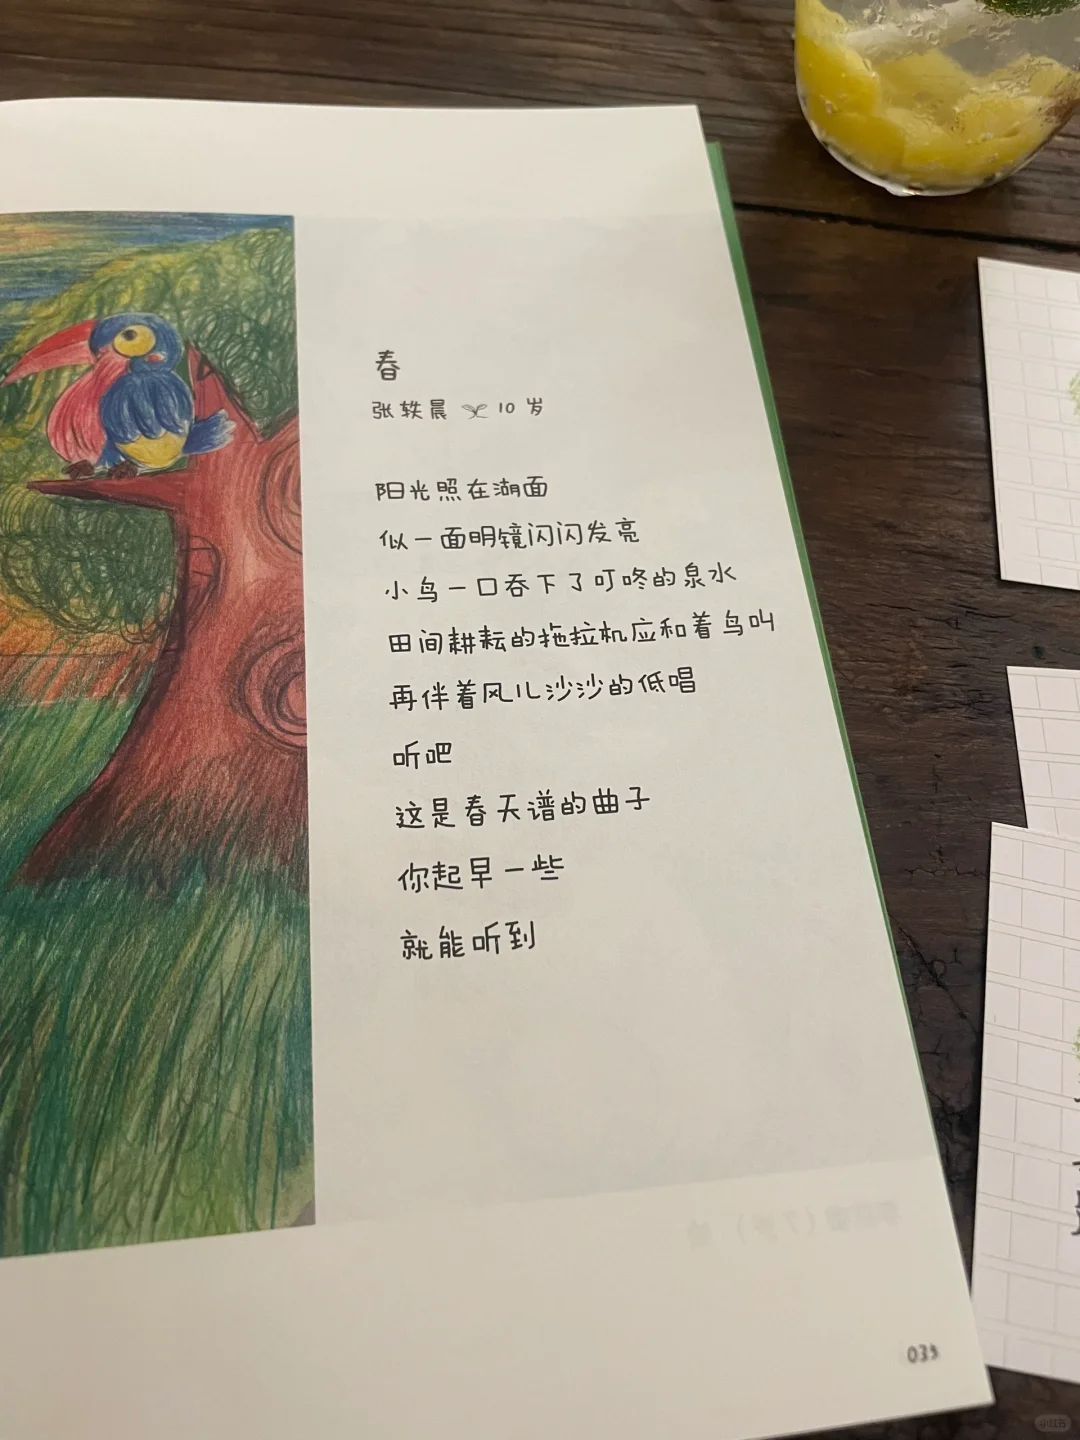 春
张轶晨 10 岁
阳光照在湖面
似一面明镜闪闪发亮
小鸟一口吞下了叮咚的泉水
田间耕耘的拖拉机应和着鸟叫
再伴着风儿沙沙的低唱
听吧
这是春天谱的曲子
你起早一些
就能听到
035
小红书